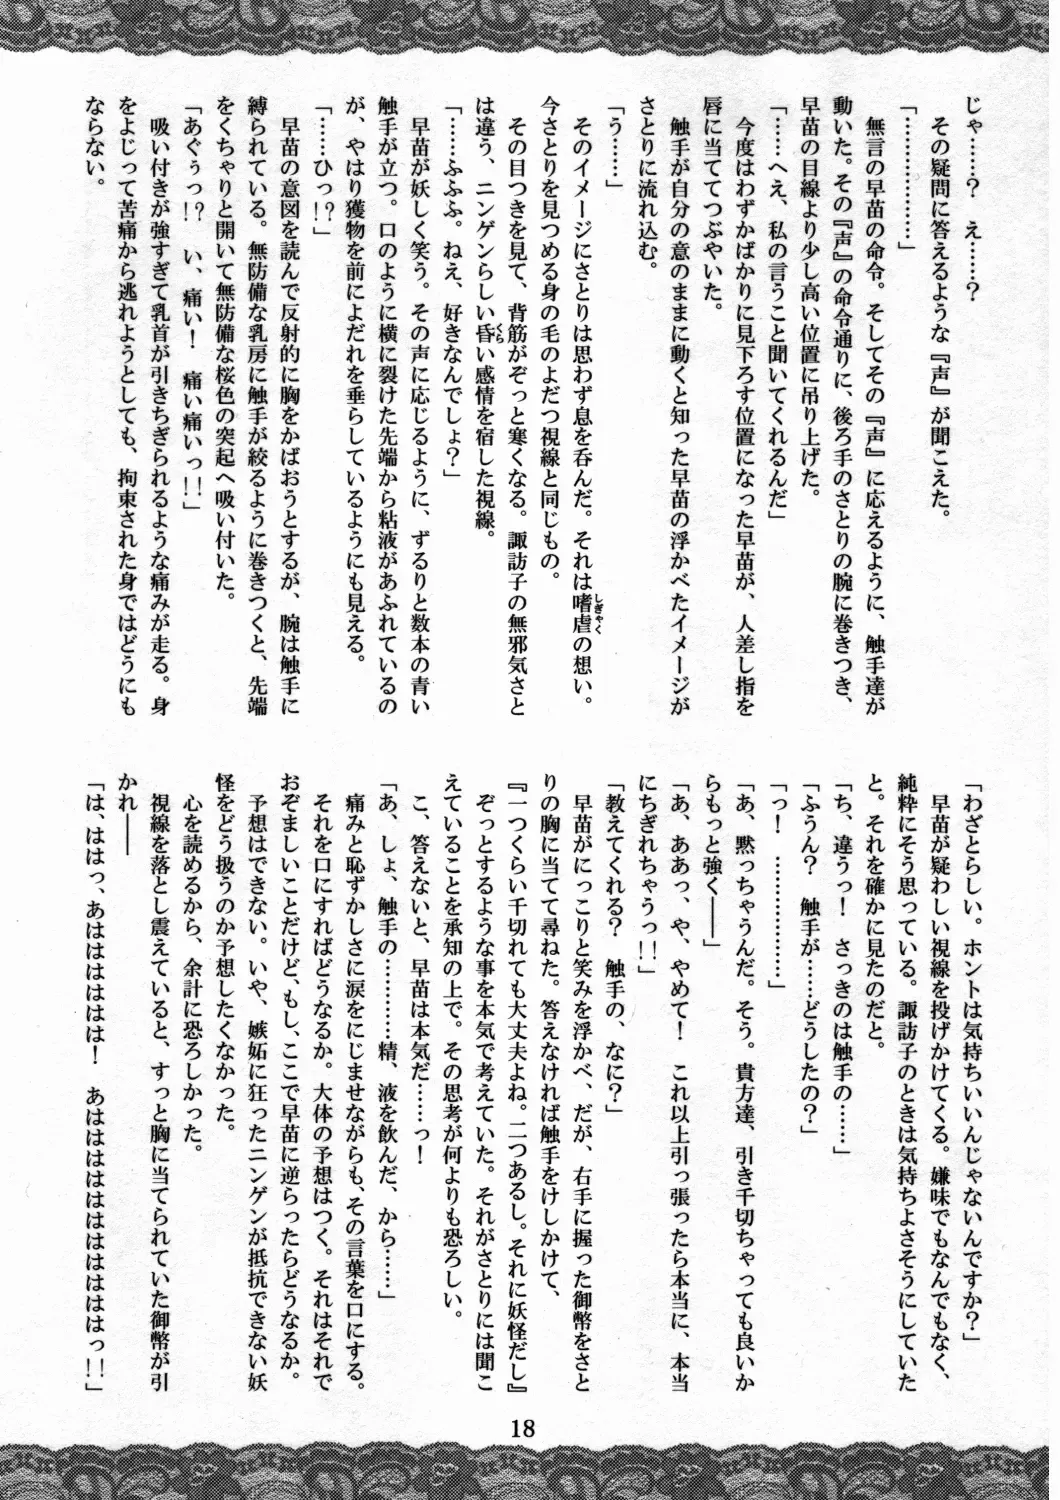 じゃ……？　え……？
その疑問に答えるような『声』が聞こえた。
「………………」
無言の早苗の命令。そしてその『声』に応えるように、触手達が
動いた。その『声』の命令通りに、後ろ手のさとりの腕に巻きつき、
早苗の目線より少し高い位置に吊り上げた。
「……へえ、私の言うこと聞いてくれるんだ」
今度はわずかばかりに見下ろす位置になった早苗が、人差し指を
唇に当ててつぶやいた。
触手が自分の意のままに動くと知った早苗の浮かべたイメージが
さとりに流れ込む。
「う……」
そのイメージにさとりは思わず息を呑んだ。それは嗜虐の想い。
今さとりを見つめる身の毛のよだつ視線と同じもの。
その目つきを見て、背筋がぞっと寒くなる。諏訪子の無邪気さと
は違う、ニンゲンらしい昏い感情を宿した視線。
「……ふふふ。ねえ、好きなんでしょ？」
早苗が妖しく笑う。その声に応じるように、ずるりと数本の青い
触手が立つ。口のように横に裂けた先端から粘液があふれているの
が、やはり獲物を前によだれを垂らしているようにも見える。
「……ひっ!?」
早苗の意図を読んで反射的に胸をかばおうとするが、腕は触手に
縛られている。無防備な乳房に触手が絞るように巻きつくと、先端
をくちゃりと開いて無防備な桜色の突起へ吸い付いた。
「あぐぅっ!?　い、痛い！　痛い痛いっ!!」
吸い付きが強すぎて乳首が引きちぎられるような痛みが走る。身
をよじって苦痛から逃れようとしても、拘束された身ではどうにも
ならない。
「わざとらしい。ホントは気持ちいいんじゃないんですか？」
早苗が疑わしい視線を投げかけてくる。嫌味でもなんでもなく、
純粋にそう思っている。諏訪子のときは気持ちよさそうにしていた
と。それを確かに見たのだと。
「ち、違うっ！　さっきのは触手の……」
「ふうん？　触手が……どうしたの？」
「っ！　………………」
「あ、黙っちゃうんだ。そう。貴方達、引き千切っちゃっても良いか
らもっと強く――」
「あ、ああっ、や、やめて！　これ以上引っ張ったら本当に、本当
にちぎれちゃうっ!!」
「教えてくれる？　触手の、なに？」
早苗がにっこりと笑みを浮かべ、だが、右手に握った御幣をさと
りの胸に当てて尋ねた。答えなければ触手をけしかけて、
『一つくらい千切れても大丈夫よね。二つあるし。それに妖怪だし』
ぞっとするような事を本気で考えていた。それがさとりには聞こ
えていることを承知の上で。その思考が何よりも恐ろしい。
こ、答えないと、早苗は本気だ……っ！
「あ、しょ、触手の…………精、液を飲んだ、から……」
痛みと恥ずかしさに涙をにじませながらも、その言葉を口にする。
それを口にすればどうなるか。大体の予想はつく。それはそれで
おぞましいことだけど、もし、ここで早苗に逆らったらどうなるか。
予想はできない。いや、嫉妬に狂ったニンゲンが抵抗できない妖
怪をどう扱うのか予想したくなかった。
心を読めるから、余計に恐ろしかった。
視線を落とし震えていると、すっと胸に当てられていた御幣が引
かれ――
「は、ははっ、あはははははは！　あははははははははははっ!!」
18